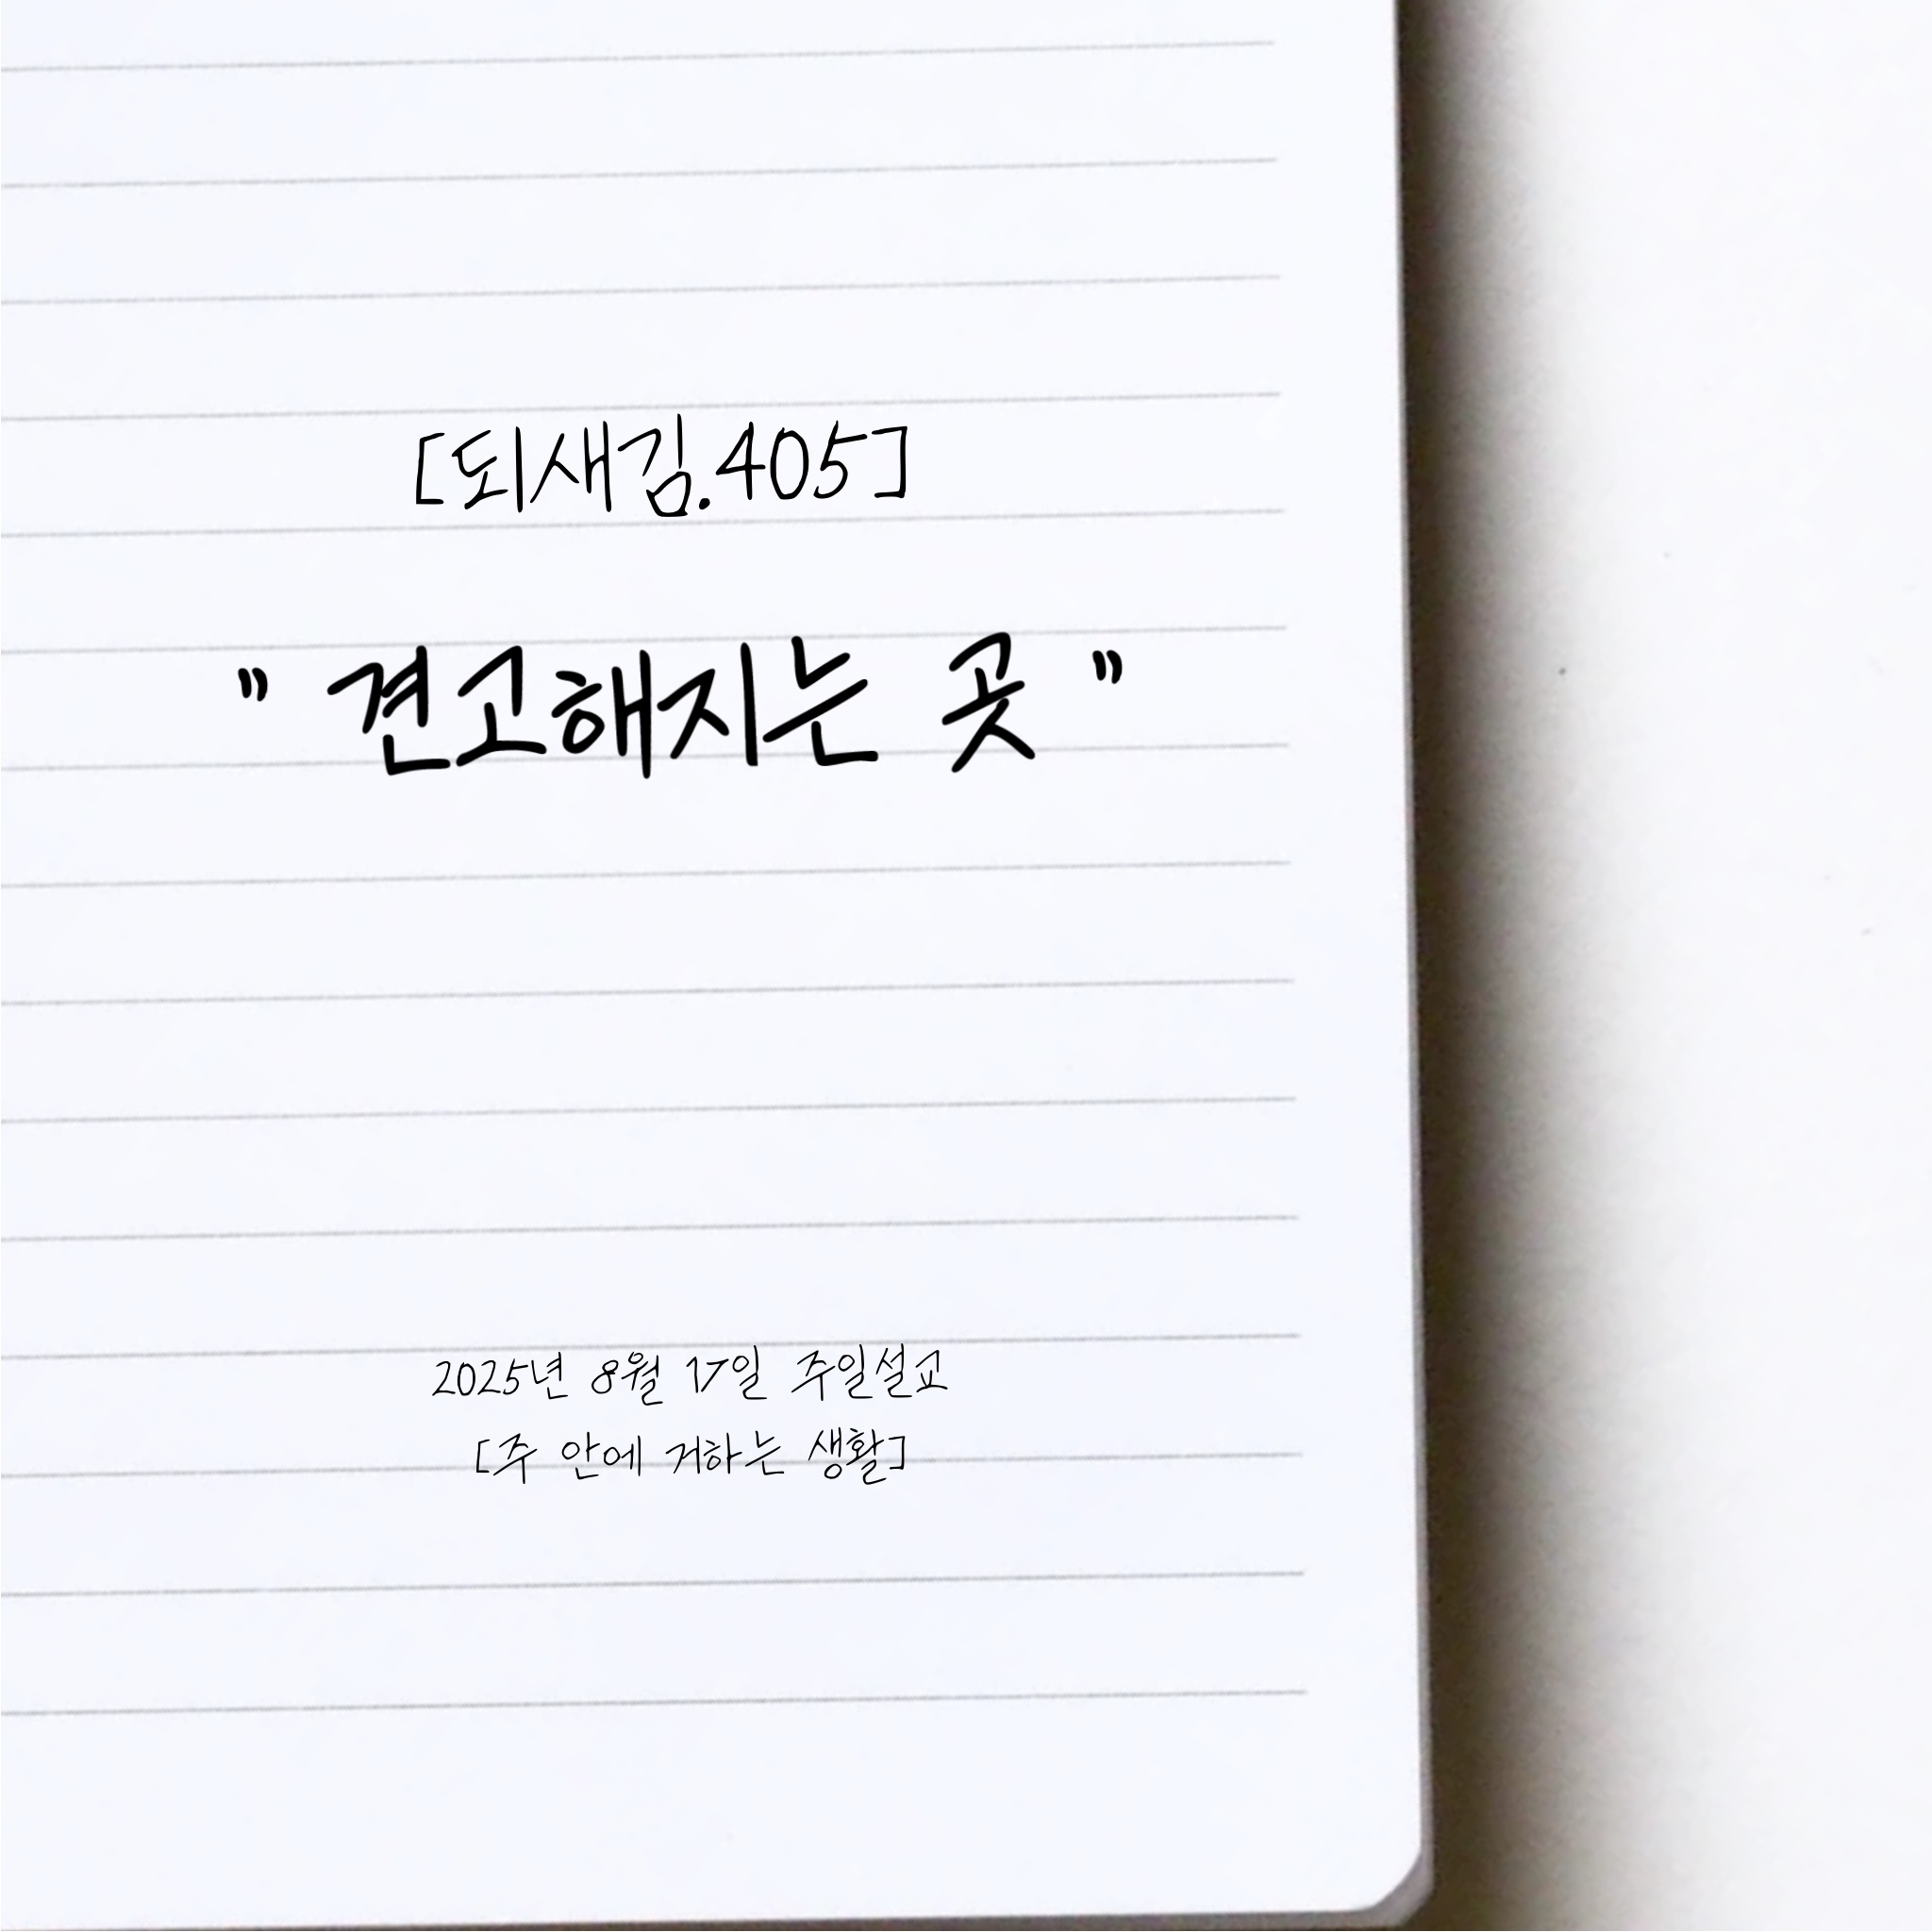 [되새김.405]
" 견고해지는 곳 "
2025년 8월 17일 주일설교
[주 안에 거하는 생활]